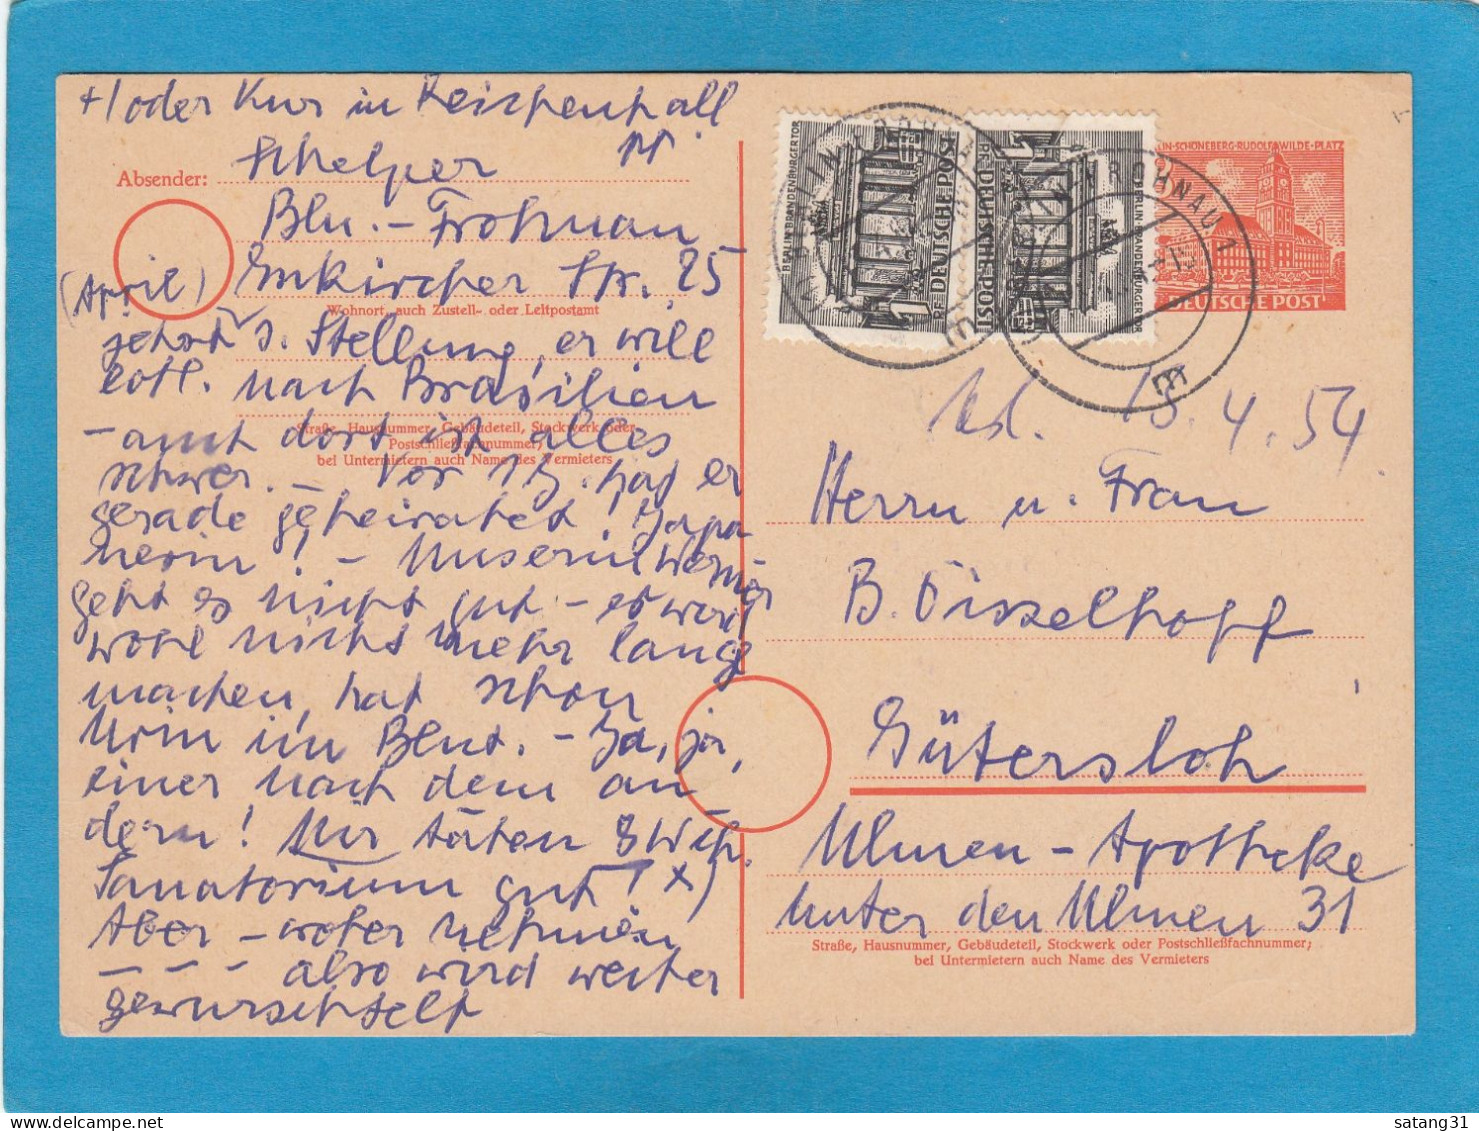 +) oder Kur in Reichenhall
Absender: Schelper
Bln. - Frohnau
(April) Enkircher Str. 25
Wohnort, auch Zustell- oder Leitpostamt
s. Stellung, er will
evtl. nach Brasilien
- auch dort ist alles
Straße, Hausnummer, Gebäudeteil, Stockwerk oder
Postschließfachnummer;
bei Untermietern auch Name des Vermieters
schwer. - Vor 1 J. hat er
gerade geheiratet. Japa
nerin! - Unserm
geht es nicht gut - es wird
wohl nicht mehr lange
machen, hat schon
Urin im Blut. - Ja, ja,
einer nach dem an
dern! Mir täten 3 Wch.
Sanatorium gut! x)
Aber - woher nehmen
- - - also wird weiter
gewurschtelt
BERLIN-SCHÖNEBERG·RUDOLF WILDE-PLATZ
DEUTSCHE POST
BERLIN BRANDENBURGER TOR
1 PF DEUTSCHE POST
BERLIN BRANDENBURGER TOR
1 PF DEUTSCHE POST
BERLIN-FROHNAU 1
18.4.54
Herrn u. Frau
B. Disselhoff
Gütersloh
Ulmen-Apotheke
Unter den Ulmen 31
Straße, Hausnummer, Gebäudeteil, Stockwerk oder Postschließfachnummer;
bei Untermietern auch Name des Vermieters
satang31